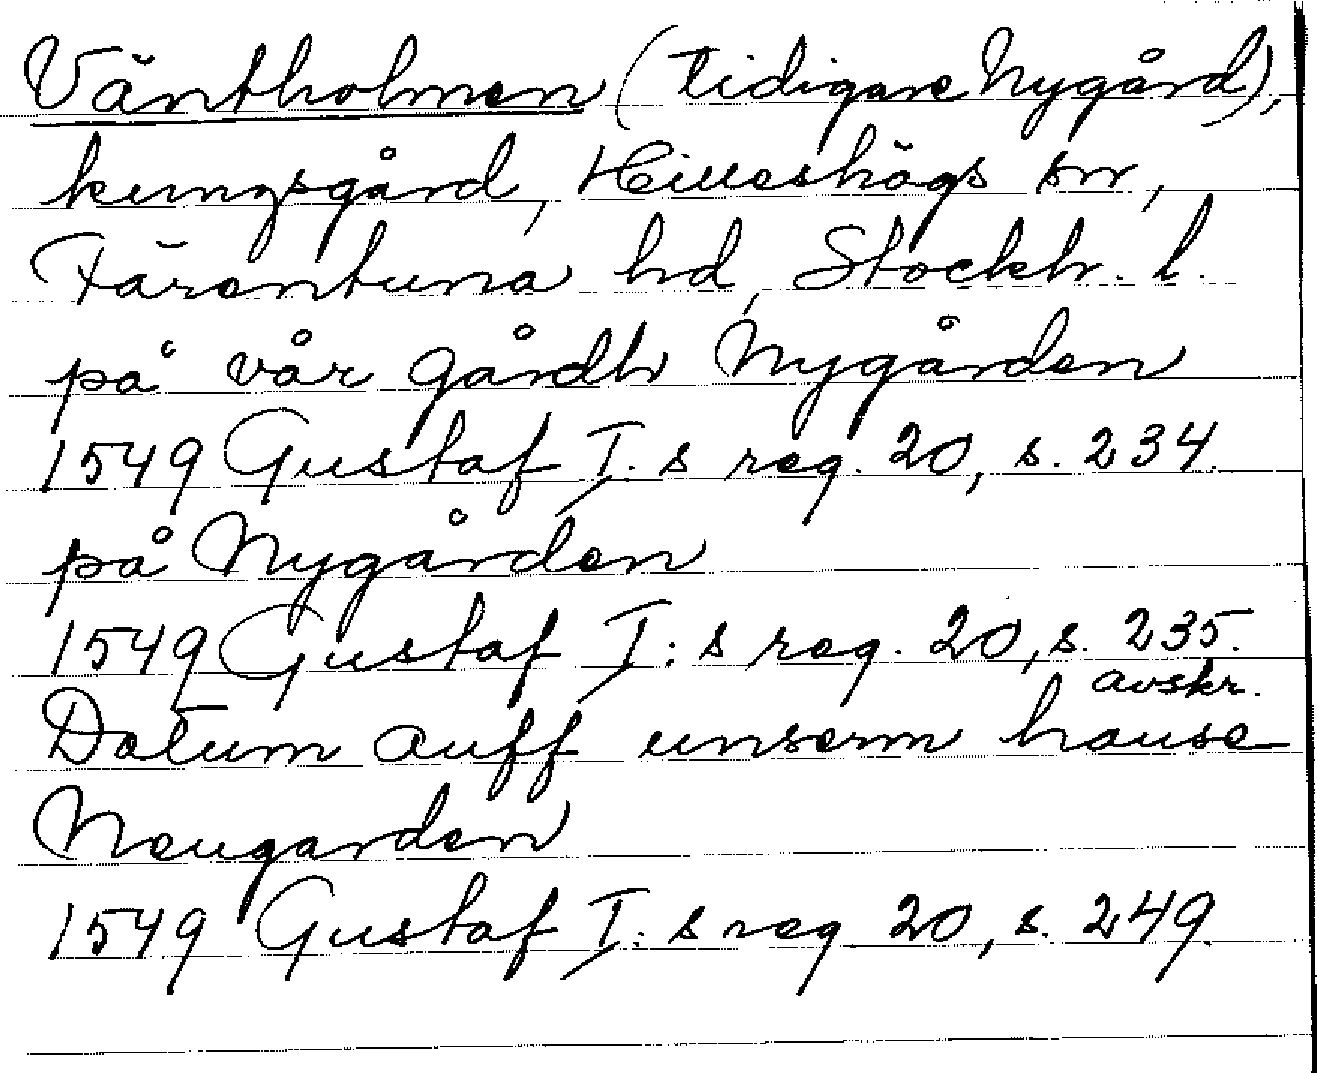 Väntholmen (tidigare Nygård),
kungsgård, Hilleshögs sn,
Färentuna hd, Stockh. l.
på vår gårdh Nygården
1549 Gustaf I. s reg. 20, s. 234.
på Nygården
1549 Gustaf I: s reg. 20, s. 235.
avskr.
Datum auff unserm hause
Neugarden
1549 Gustaf I: s reg 20, s. 249.